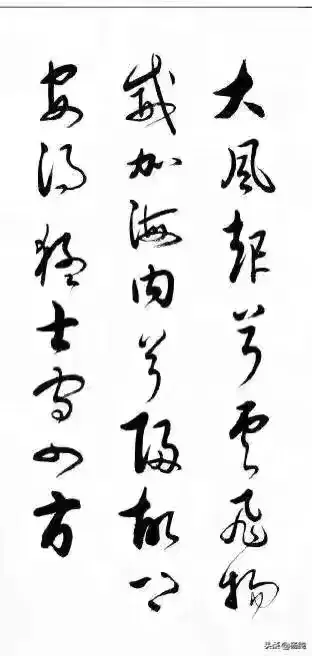 大風起兮雲飛揚
威加海内兮歸故鄉
安得猛士守四方
头条